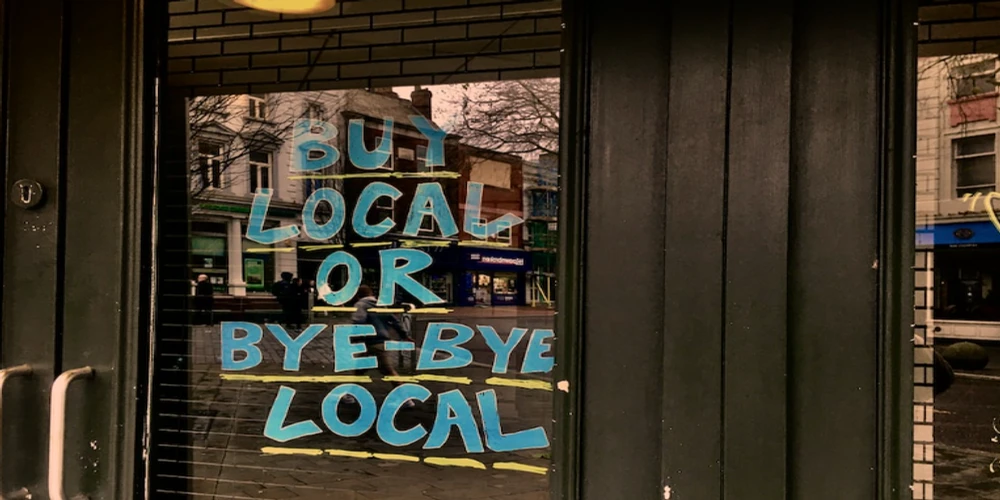 BUY
LOCAL
OR
BYE-BYE
LOCAL